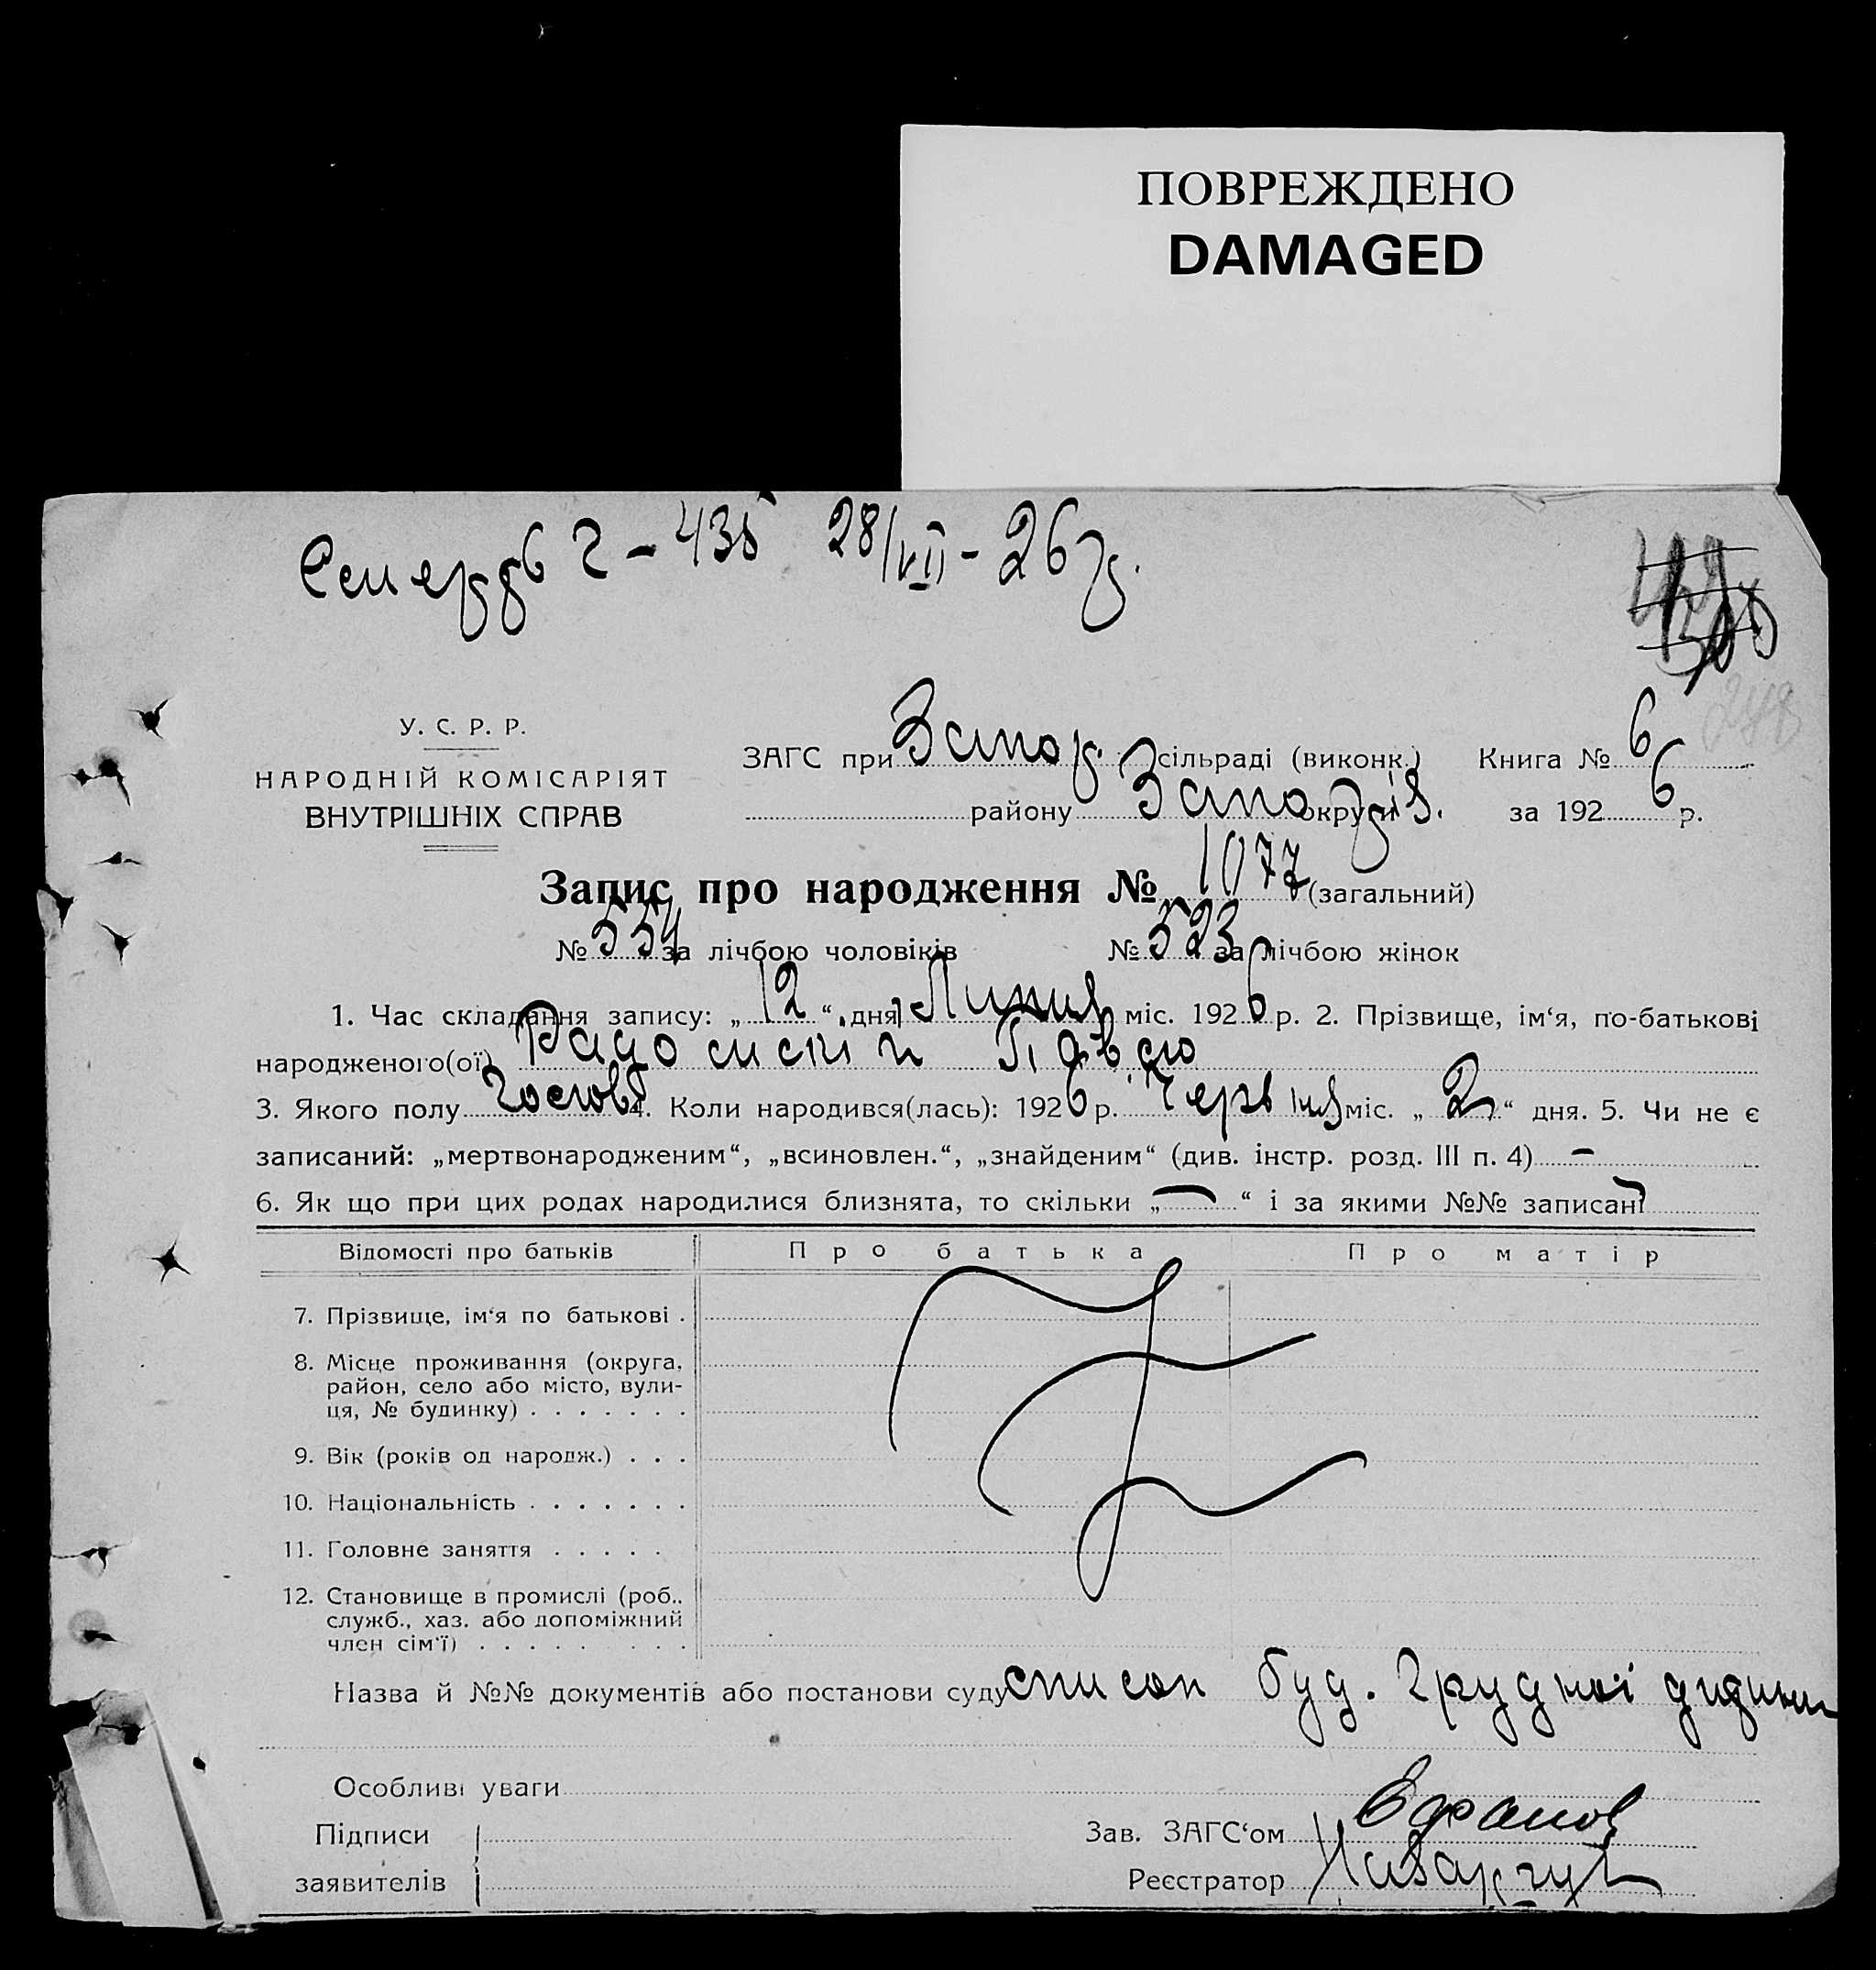 ПОВРЕЖДЕНО
DAMAGED
28/VII - 26 р.
У. С. Р. Р.
НАРОДНІЙ КОМІСАРІЯТ
ВНУТРІШНІХ СПРАВ
ЗАГС при Запор. сільраді (виконк.) Книга № 6
району Запоріз. округи за 192 6 р.
Запис про народження № 1077 (загальний)
№ 554 за лічбою чоловіків № 523 за лічбою жінок
1. Час складання запису: „ 12 “ дня Липня міс. 192 6 р. 2. Прізвище, ім‘я, по-батькові
народженого(ої)
3. Якого полу 4. Коли народився(лась): 192 6 р. Червня міс. „ 2 “ дня. 5. Чи не є
записаний: „мертвонародженим“, „всиновлен.“, „знайденим“ (див. інстр. розд. III п. 4) –
6. Як що при цих родах народилися близнята, то скільки „ — “ і за якими №№ записані
Відомості про батьків Про батька Про матір
7. Прізвище, ім‘я по батькові .
8. Місце проживання (округа,
район, село або місто, вули-
ця, № будинку) . . . . . . .
9. Вік (років од народж.) . . .
10. Національність . . . . . . .
11. Головне заняття . . . . .
12. Становище в промислі (роб.,
служб., хаз. або допоміжний
член сім‘ї) . . . . . . . .
Назва й №№ документів або постанови суду список буд. Грудної дитини
Особливі уваги
Підписи
Зав. ЗАГС‘ом
заявителів
Реєстратор